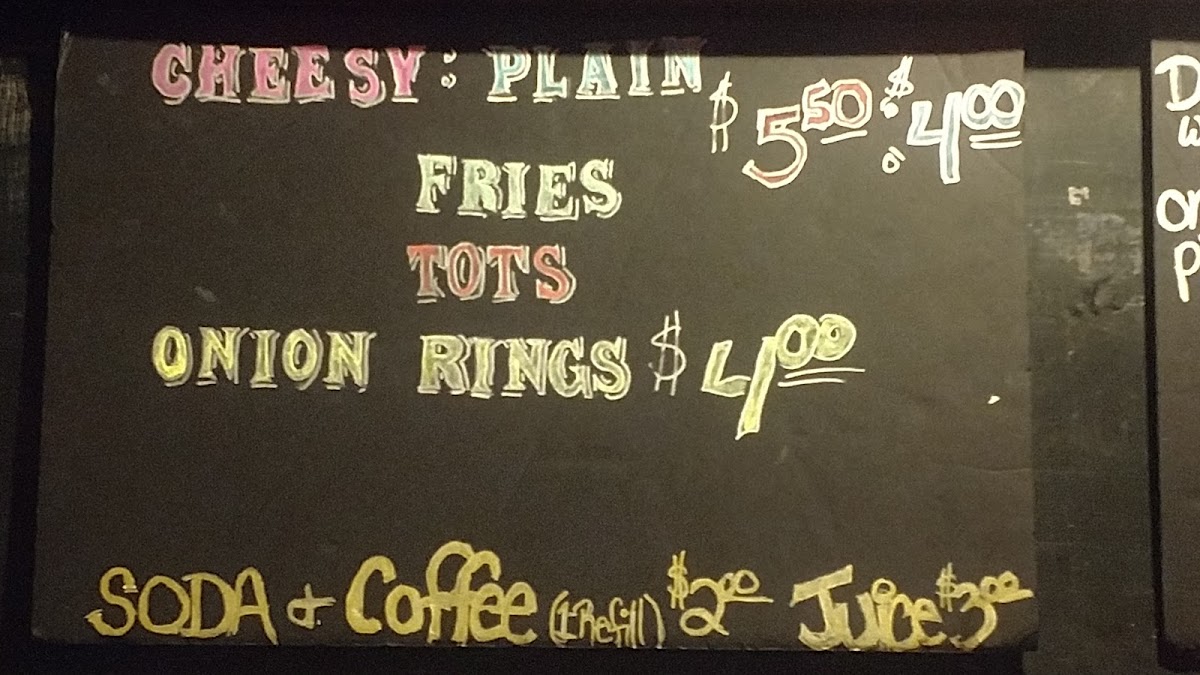 CHEESY : PLAIN $5.50 : $4.00
FRIES
TOTS
ONION RINGS $4.00
SODA & Coffee (1 Refill) $2.00 Juice $3.00